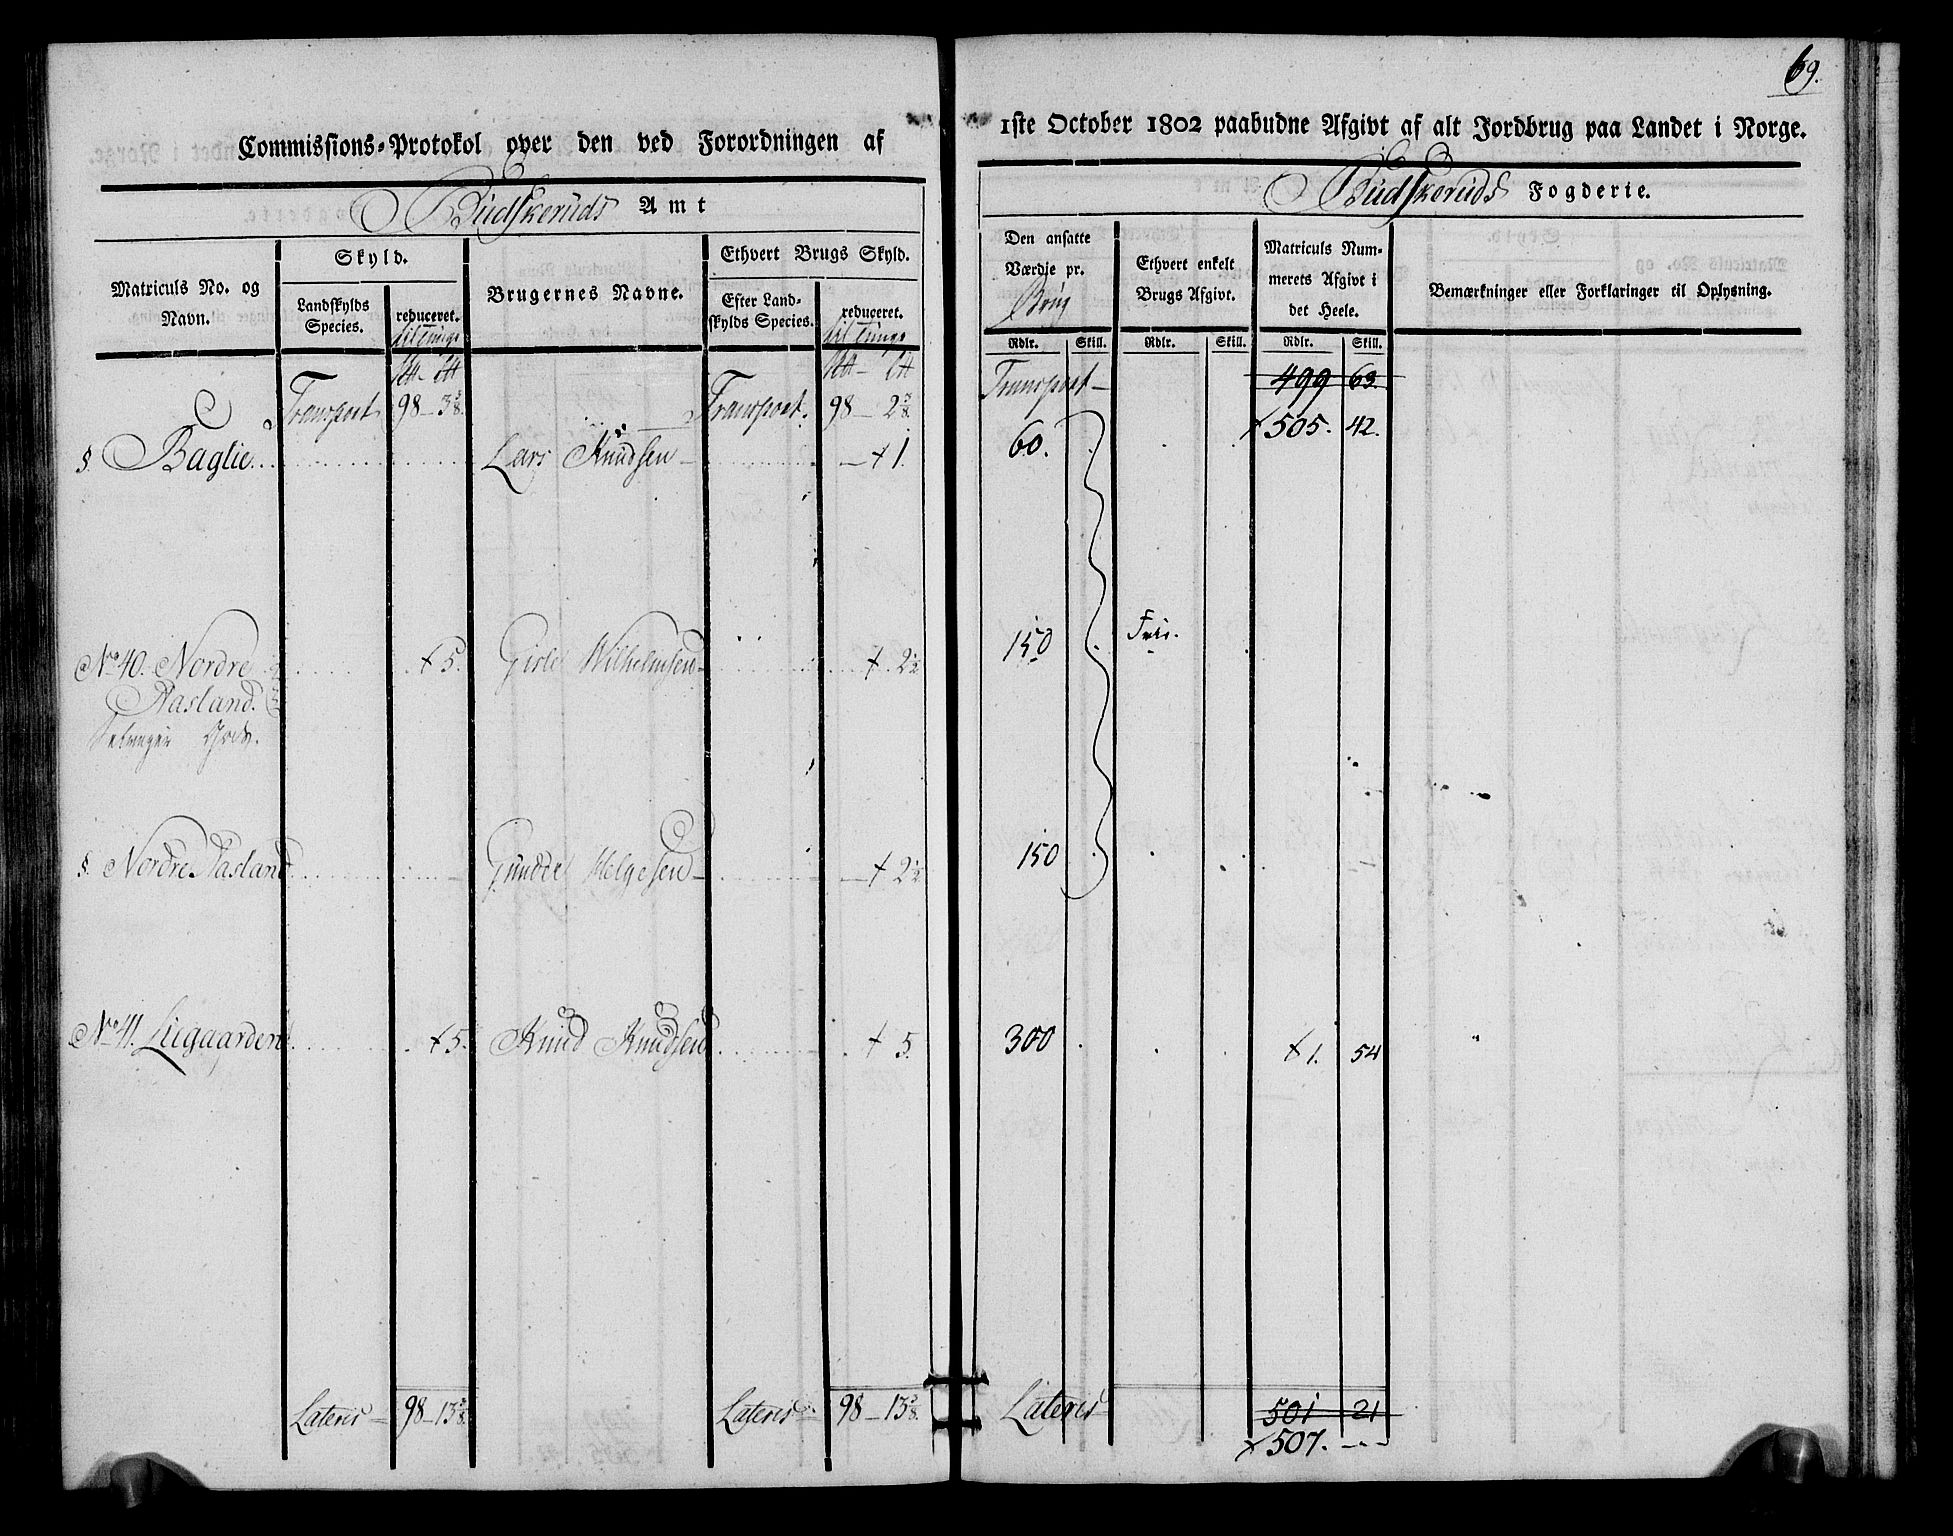 69.
Commissions-Protokol over den ved Forordningen af 1ste October 1802 paabudne Afgivt af alt Jordbrug paa Landet i Norge.
Budskeruds Amt
Budskeruds Fogderie.
Matriculs No. og Navn.
Skyld.
Landskylds Species.
reduceret.
til Tunge
Brugernes Navne.
Ethvert Brugs Skyld.
Efter Landskylds Species.
reduceret.
til Tunge
Den ansatte Værdie pr. Brug
Ethvert enkelt Brugs Afgivt.
Matriculs Nummerets Afgivt i det Heele.
Bemærkninger eller Forklaringer til Oplysning.
Rdlr. Skill. Rdlr. Skill. Rdlr. Skill.
Transport 98 – 3 5/8. Transport. 98 – 2 3/8. Transport – 499 63.
+ 505. 42.
§. Baglie Lars Knudsen – + 1. 60.
No. 40. Nordre + 5. Wilhelmsen + 2½ 150 Frie.
Aasland.
§. Nordre Aasland Gunder Helgesen – + 2½ 150
No. 41. Liegaarden + 5. Knud Knudsen + 5. 300 + 1. 54
Lateris – 98 – 13 5/8 Lateris 98 – 13 Lateris 501 21
+ 507. – – –